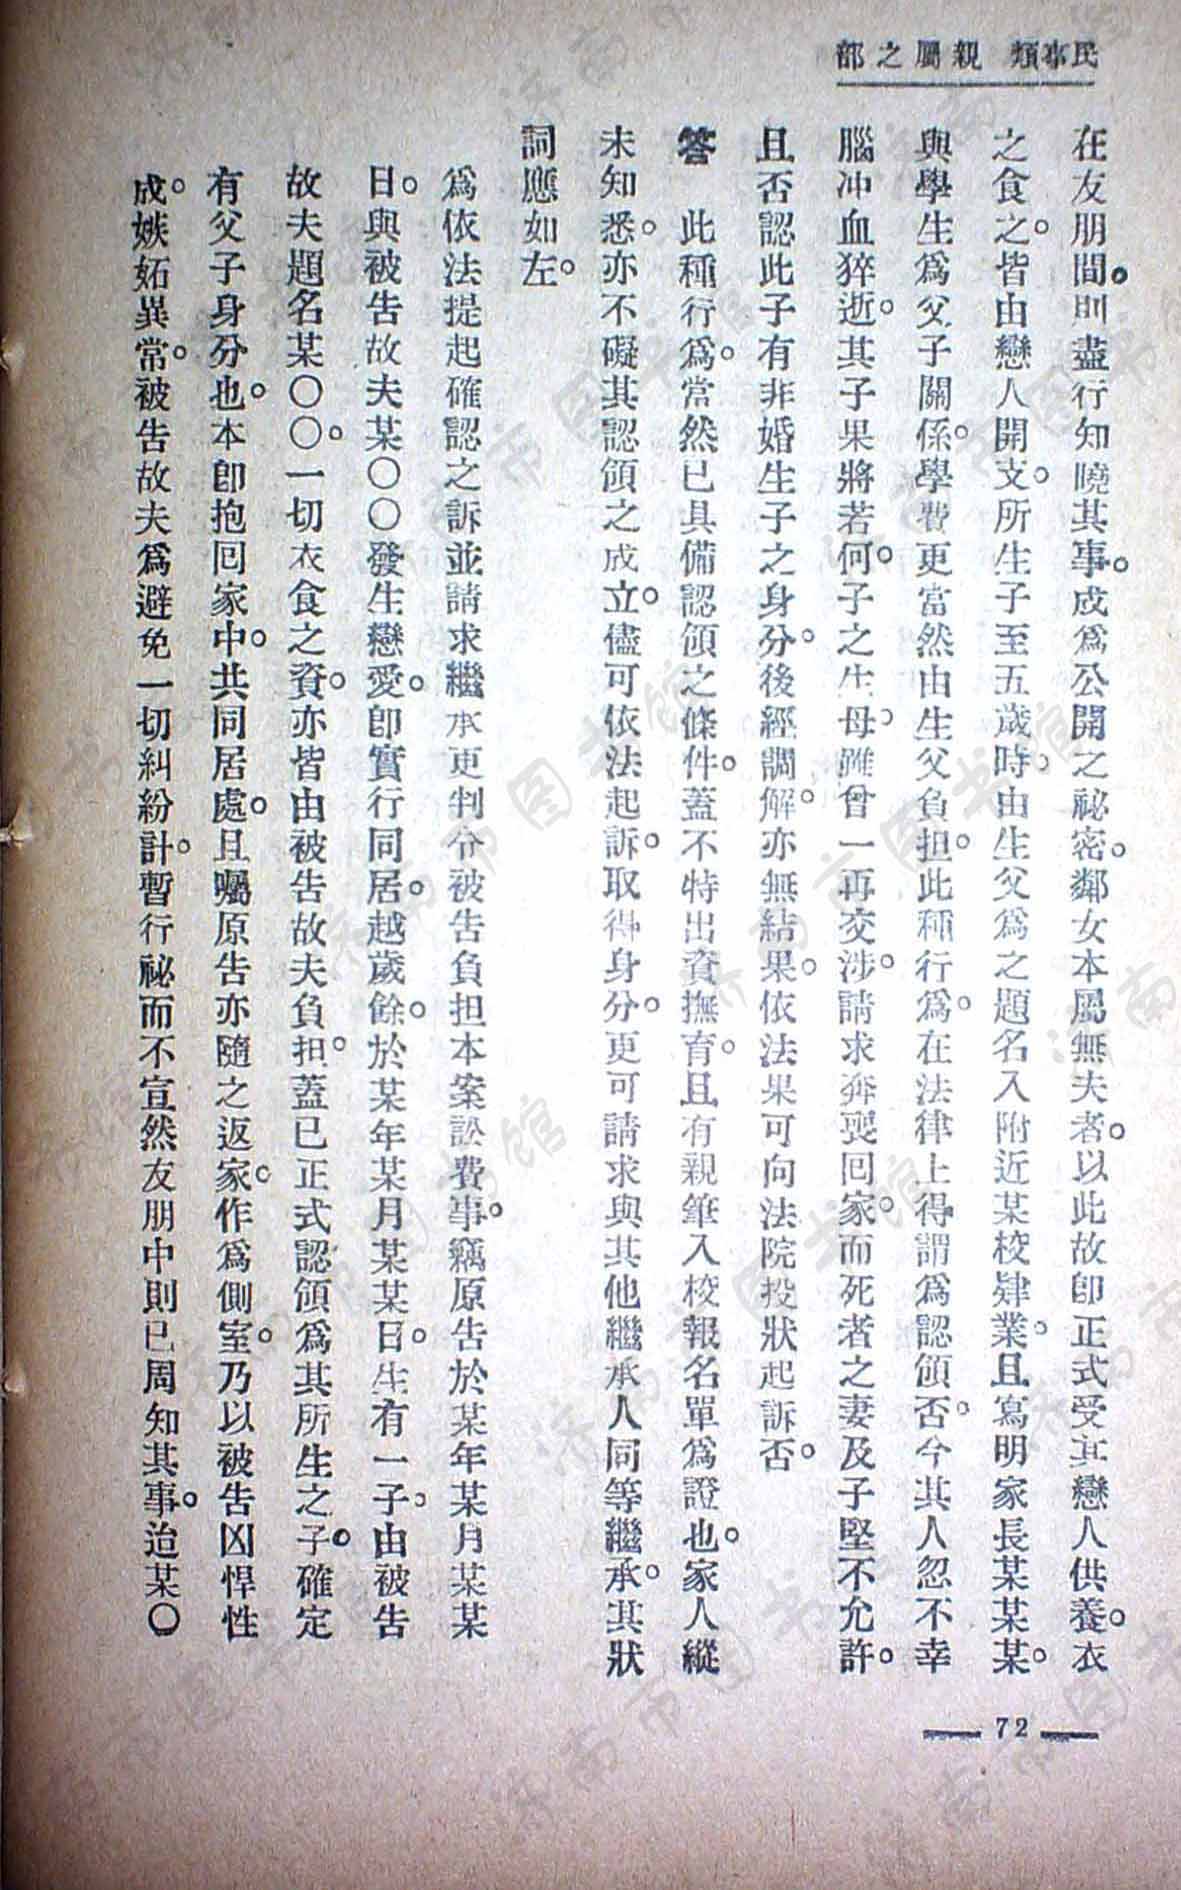 民事類 親屬之部
在友朋間。則盡行知曉其事。成爲公開之祕密。鄰女本屬無夫者。以此故卽正式受其戀人供養。衣
之食之。皆由戀人開支。所生子至五歲時。由生父爲之題名入附近某校肄業。且寫明家長某某某。
與學生爲父子關係。學費更當然由生父負担。此種行爲。在法律上得謂爲認領否。今其人忽不幸
腦冲血猝逝。其子果將若何。子之生母。雖曾一再交涉。請求奔喪囘家。而死者之妻及子堅不允許。
且否認此子有非婚生子之身分。後經調解。亦無結果。依法果可向法院投狀起訴否。
答 此種行爲。當然已具備認領之條件。蓋不特出資撫育。且有親筆入校報名單爲證也。家人縱
未知悉。亦不礙其認領之成立。儘可依法起訴。取得身分。更可請求與其他繼承人同等繼承。其狀
詞應如左。
爲依法提起確認之訴並請求繼承更判令被告負担本案訟費事。竊原告於某年某月某某
日。與被告故夫某〇〇發生戀愛。卽實行同居。越歲餘。於某年某月某某日。生有一子。由被告
故夫題名某〇〇。一切衣食之資。亦皆由被告故夫負担。蓋已正式認領爲其所生之子。確定
有父子身分也。本卽抱囘家中。共同居處。且囑原告亦隨之返家。作爲側室。乃以被告凶悍性
成。嫉妬異常。被告故夫爲避免一切糾紛計。暫行祕而不宣。然友朋中則已周知其事。迨某〇
72